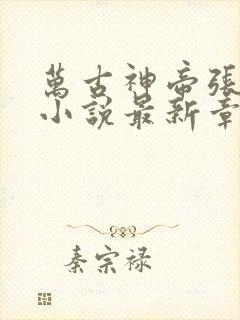 萬古神帝張
小說最新章
秦宗禄